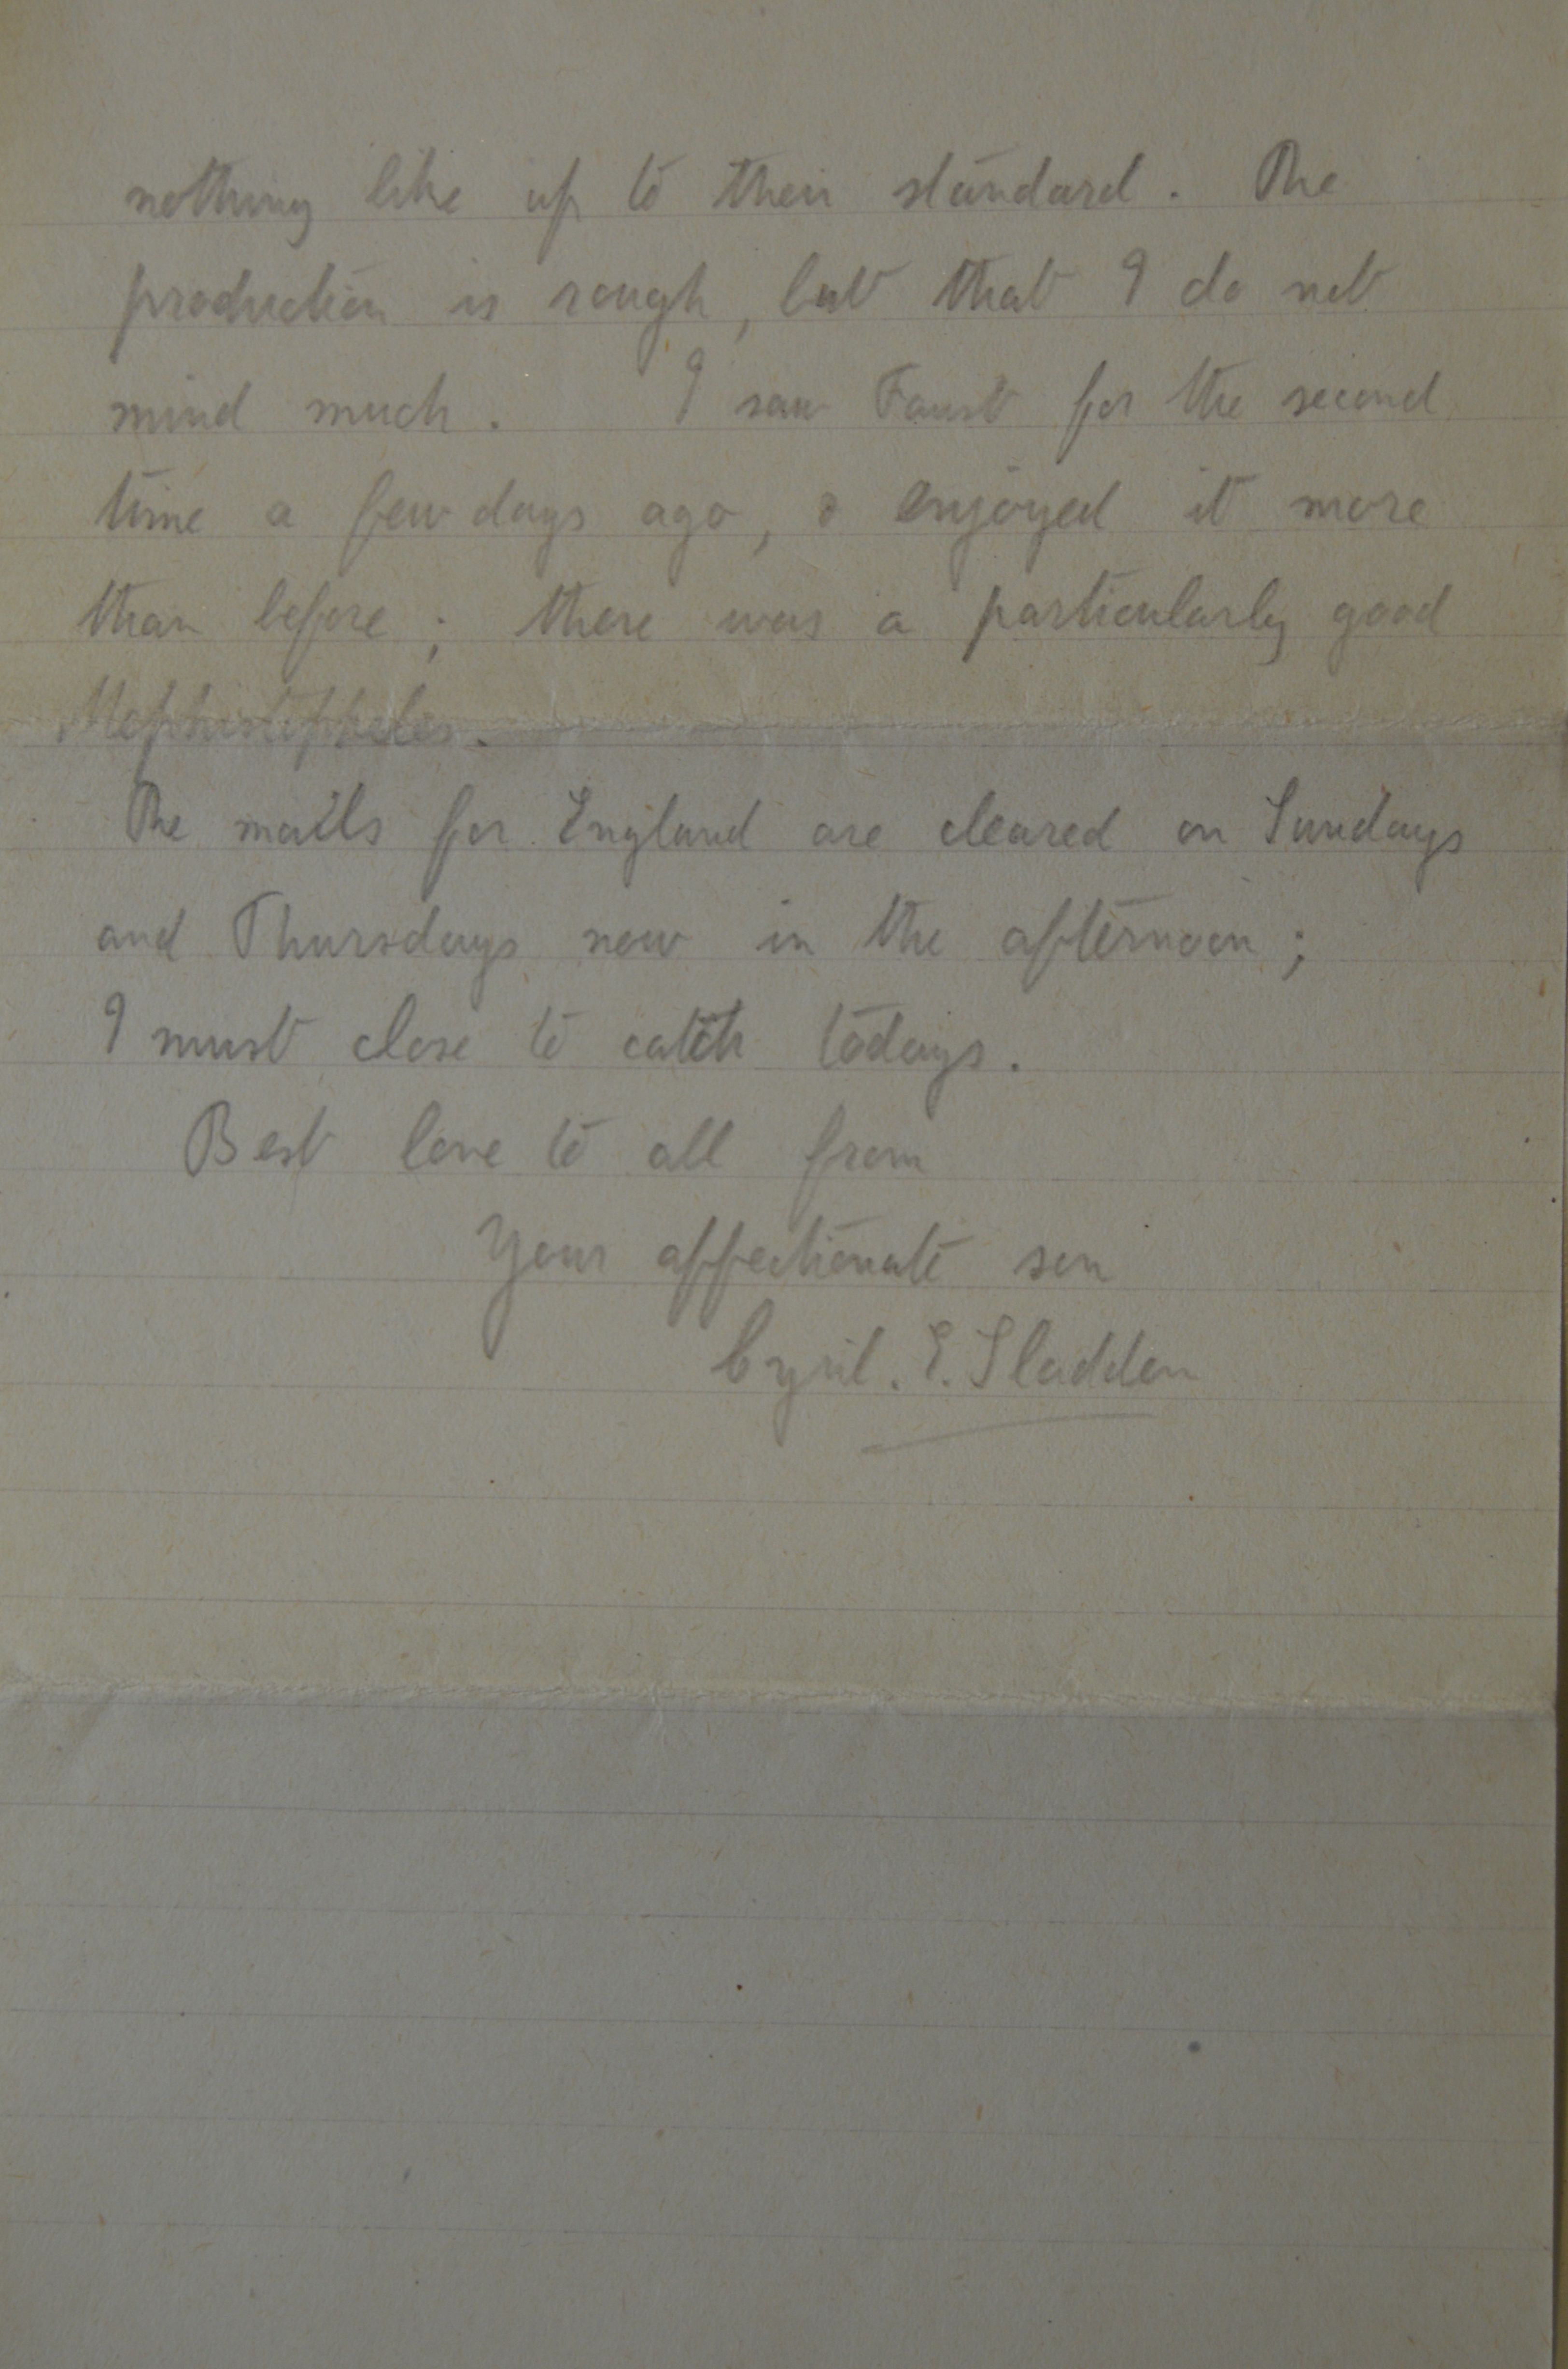 nothing like up to their standard. The
production is rough, but that I do not
mind much. I saw Faust for the second
time a few days ago, & enjoyed it more
than before; there was a particularly good
Mephistopheles.
The mails for England are cleared on Sundays
and Thursdays now in the afternoon;
I must close to catch todays.
Best love to all from
Your affectionate son
Cyril. E. Sladden